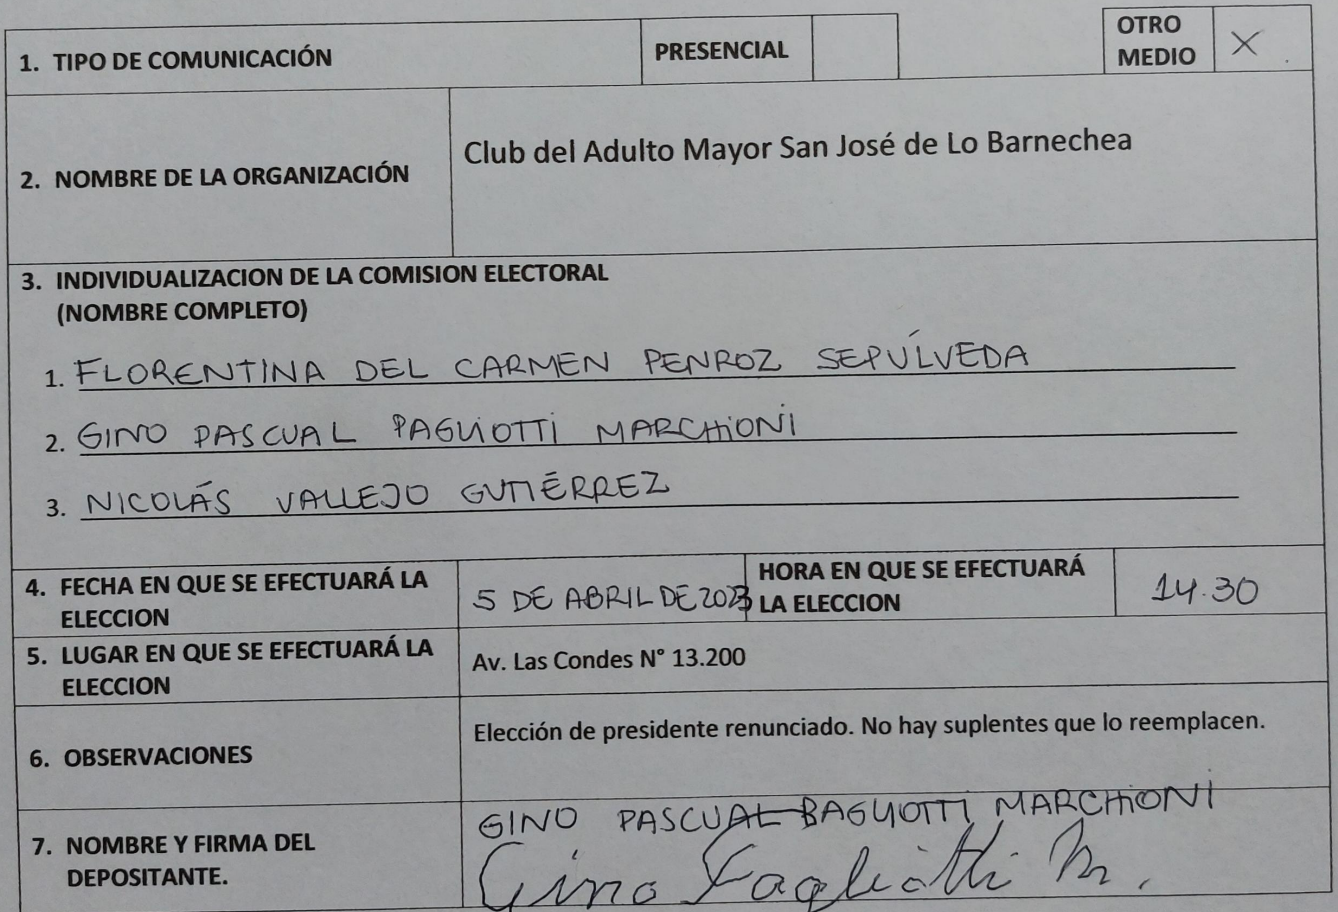 1. TIPO DE COMUNICACIÓN
PRESENCIAL
OTRO
MEDIO
X
2. NOMBRE DE LA ORGANIZACIÓN
Club del Adulto Mayor San José de Lo Barnechea
3. INDIVIDUALIZACION DE LA COMISION ELECTORAL
(NOMBRE COMPLETO)
1. FLORENTINA DEL CARMEN PENROZ SEPÚLVEDA
2. GINO PASCUAL PAGLIOTTI MARCHIONI
3. NICOLÁS VALLEJO GUTIÉRREZ
4. FECHA EN QUE SE EFECTUARÁ LA
ELECCION
5 DE ABRIL DE 2023
HORA EN QUE SE EFECTUARÁ
LA ELECCION
14.30
5. LUGAR EN QUE SE EFECTUARÁ LA
ELECCION
Av. Las Condes N° 13.200
6. OBSERVACIONES
Elección de presidente renunciado. No hay suplentes que lo reemplacen.
7. NOMBRE Y FIRMA DEL
DEPOSITANTE.
GINO PASCUAL BAGLIOTTI MARCHIONI
Gino Pagliotti M.